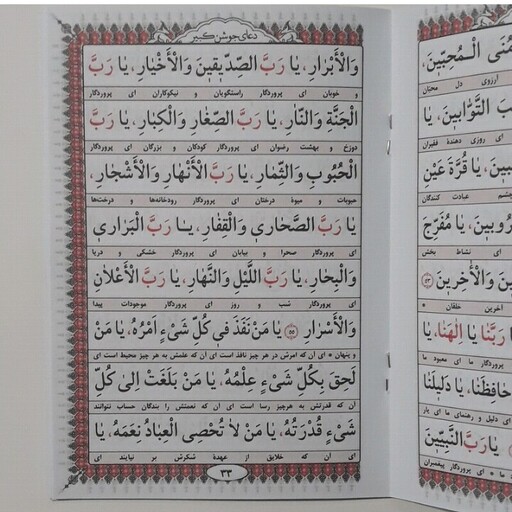 دعای جوشن کبیر
وَالْأَبْرَارِ، یا رَبَّ الصِّدِّیقِینَ وَالْأَخْیارِ، یا رَبَّ
و خوبان ای پروردگار راستگویان و نیکوکاران ای پروردگار
الْجَنَّةِ وَالنَّارِ، یا رَبَّ الصِّغارِ وَالْکِبارِ، یا رَبَّ
دوزخ و بهشت رضوان ای پروردگار کودکان و بزرگان ای پروردگار
الْحُبُوبِ وَالثِّمارِ، یا رَبَّ الْأَنْهارِ وَالْأَشْجارِ،
حبوبات و میوهٔ درختان ای پروردگار رودخانه‌ها و درخت‌ها
یا رَبَّ الصَّحاری وَالْقِفارِ، یا رَبَّ الْبَراری
ای پروردگار صحرا و بیابان ای پروردگار خشکی و دریا
وَالْبِحارِ، یا رَبَّ اللَّیْلِ وَالنَّهارِ، یا رَبَّ الْأَعْلانِ
ای پروردگار شب و روز ای پروردگار موجودات پیدا
وَالْأَسْرارِ ﴿۵۵﴾ یا مَنْ نَفَذَ فی کُلِّ شَیْءٍ اَمْرُهُ، یا مَنْ
و پنهان * ای که امرش در هر چیز نافذ است ای آن که علمش به هر چیز محیط است ای
لَحِقَ بِکُلِّ شَیْءٍ عِلْمُهُ، یا مَنْ بَلَغَتْ اِلیٰ کُلِّ
آن که قدرتش به هرچیز رسا است ای آن که نعمتش را بندگان حساب نتوانند
شَیْءٍ قُدْرَتُهُ، یا مَنْ لا تُحْصِی الْعِبادُ نِعَمَهُ، یا
ای آن که خلایق از عهدهٔ شکرش بر نیایند ای
۳۳
مُنَی الْمُحِبّینَ،
آرزوی دل محبان
بَ التَّوّابینَ، یا
ای روزی دهندهٔ فقیران
بینَ، یا قُرَّةَ عَیْنِ
چشم عبادت کنندگان
رُوبینَ، یا مُفَرِّجَ
ای نشاط بخش
نَ وَالْأخِرینَ ﴿۵۳﴾
آخرین خلقان *
رَبَّنا یا اِلٰهَنا، یا
پروردگار ما ای معبود ما
حافِظَنا، یا دَلیلَنا
ای دلیل و رهنمای ما ای یار
یا رَبَّ النَّبِیّینَ
ما * ای پروردگار پیغمبران